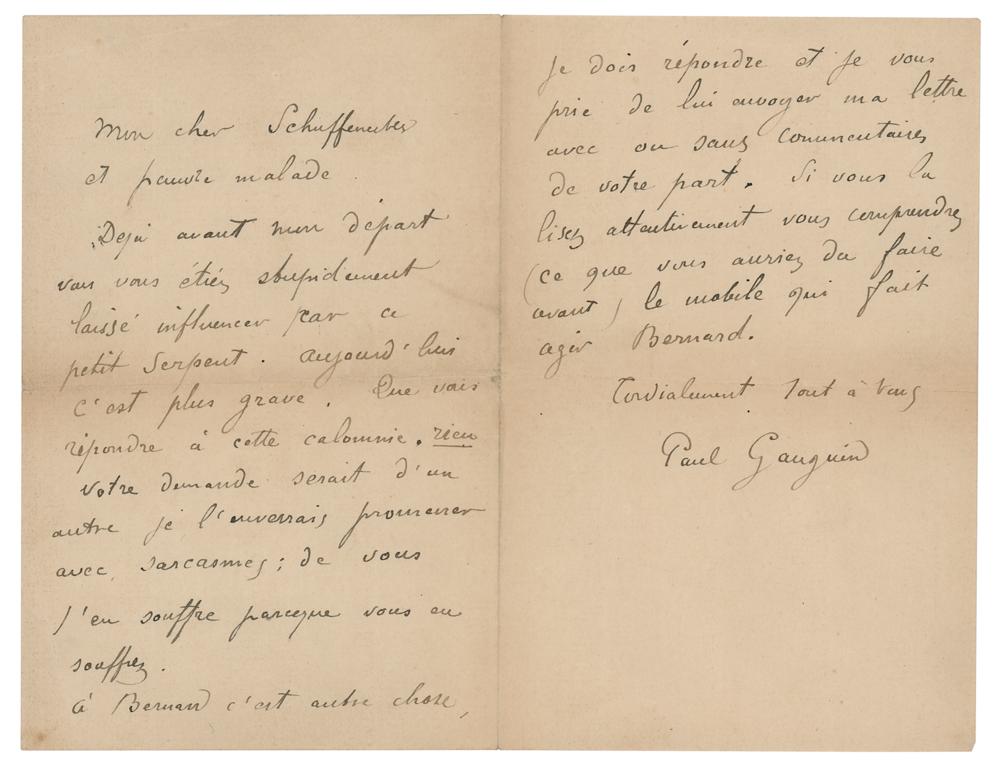 Mon cher Schuffenecker
et pauvre malade.
Dejà avant mon départ
vous vous étiez stupidement
laissé influencer par ce
petit serpent. Aujourd'hui
c'est plus grave. Que vais
répondre à cette calomnie. rien
Votre demande serait d'un
autre je l'enverrais promener
avec sarcasmes; de vous
j'en souffre parceque vous en
souffrez.
à Bernard c'est autre chose,
je dois répondre et je vous
prie de lui envoyer ma lettre
avec ou sans commentaires
de votre part. Si vous la
lisez attentivement vous comprendrez
(ce que vous auriez du faire
avant) le mobile qui fait
agir Bernard.
Cordialement tout à vous
Paul Gauguin